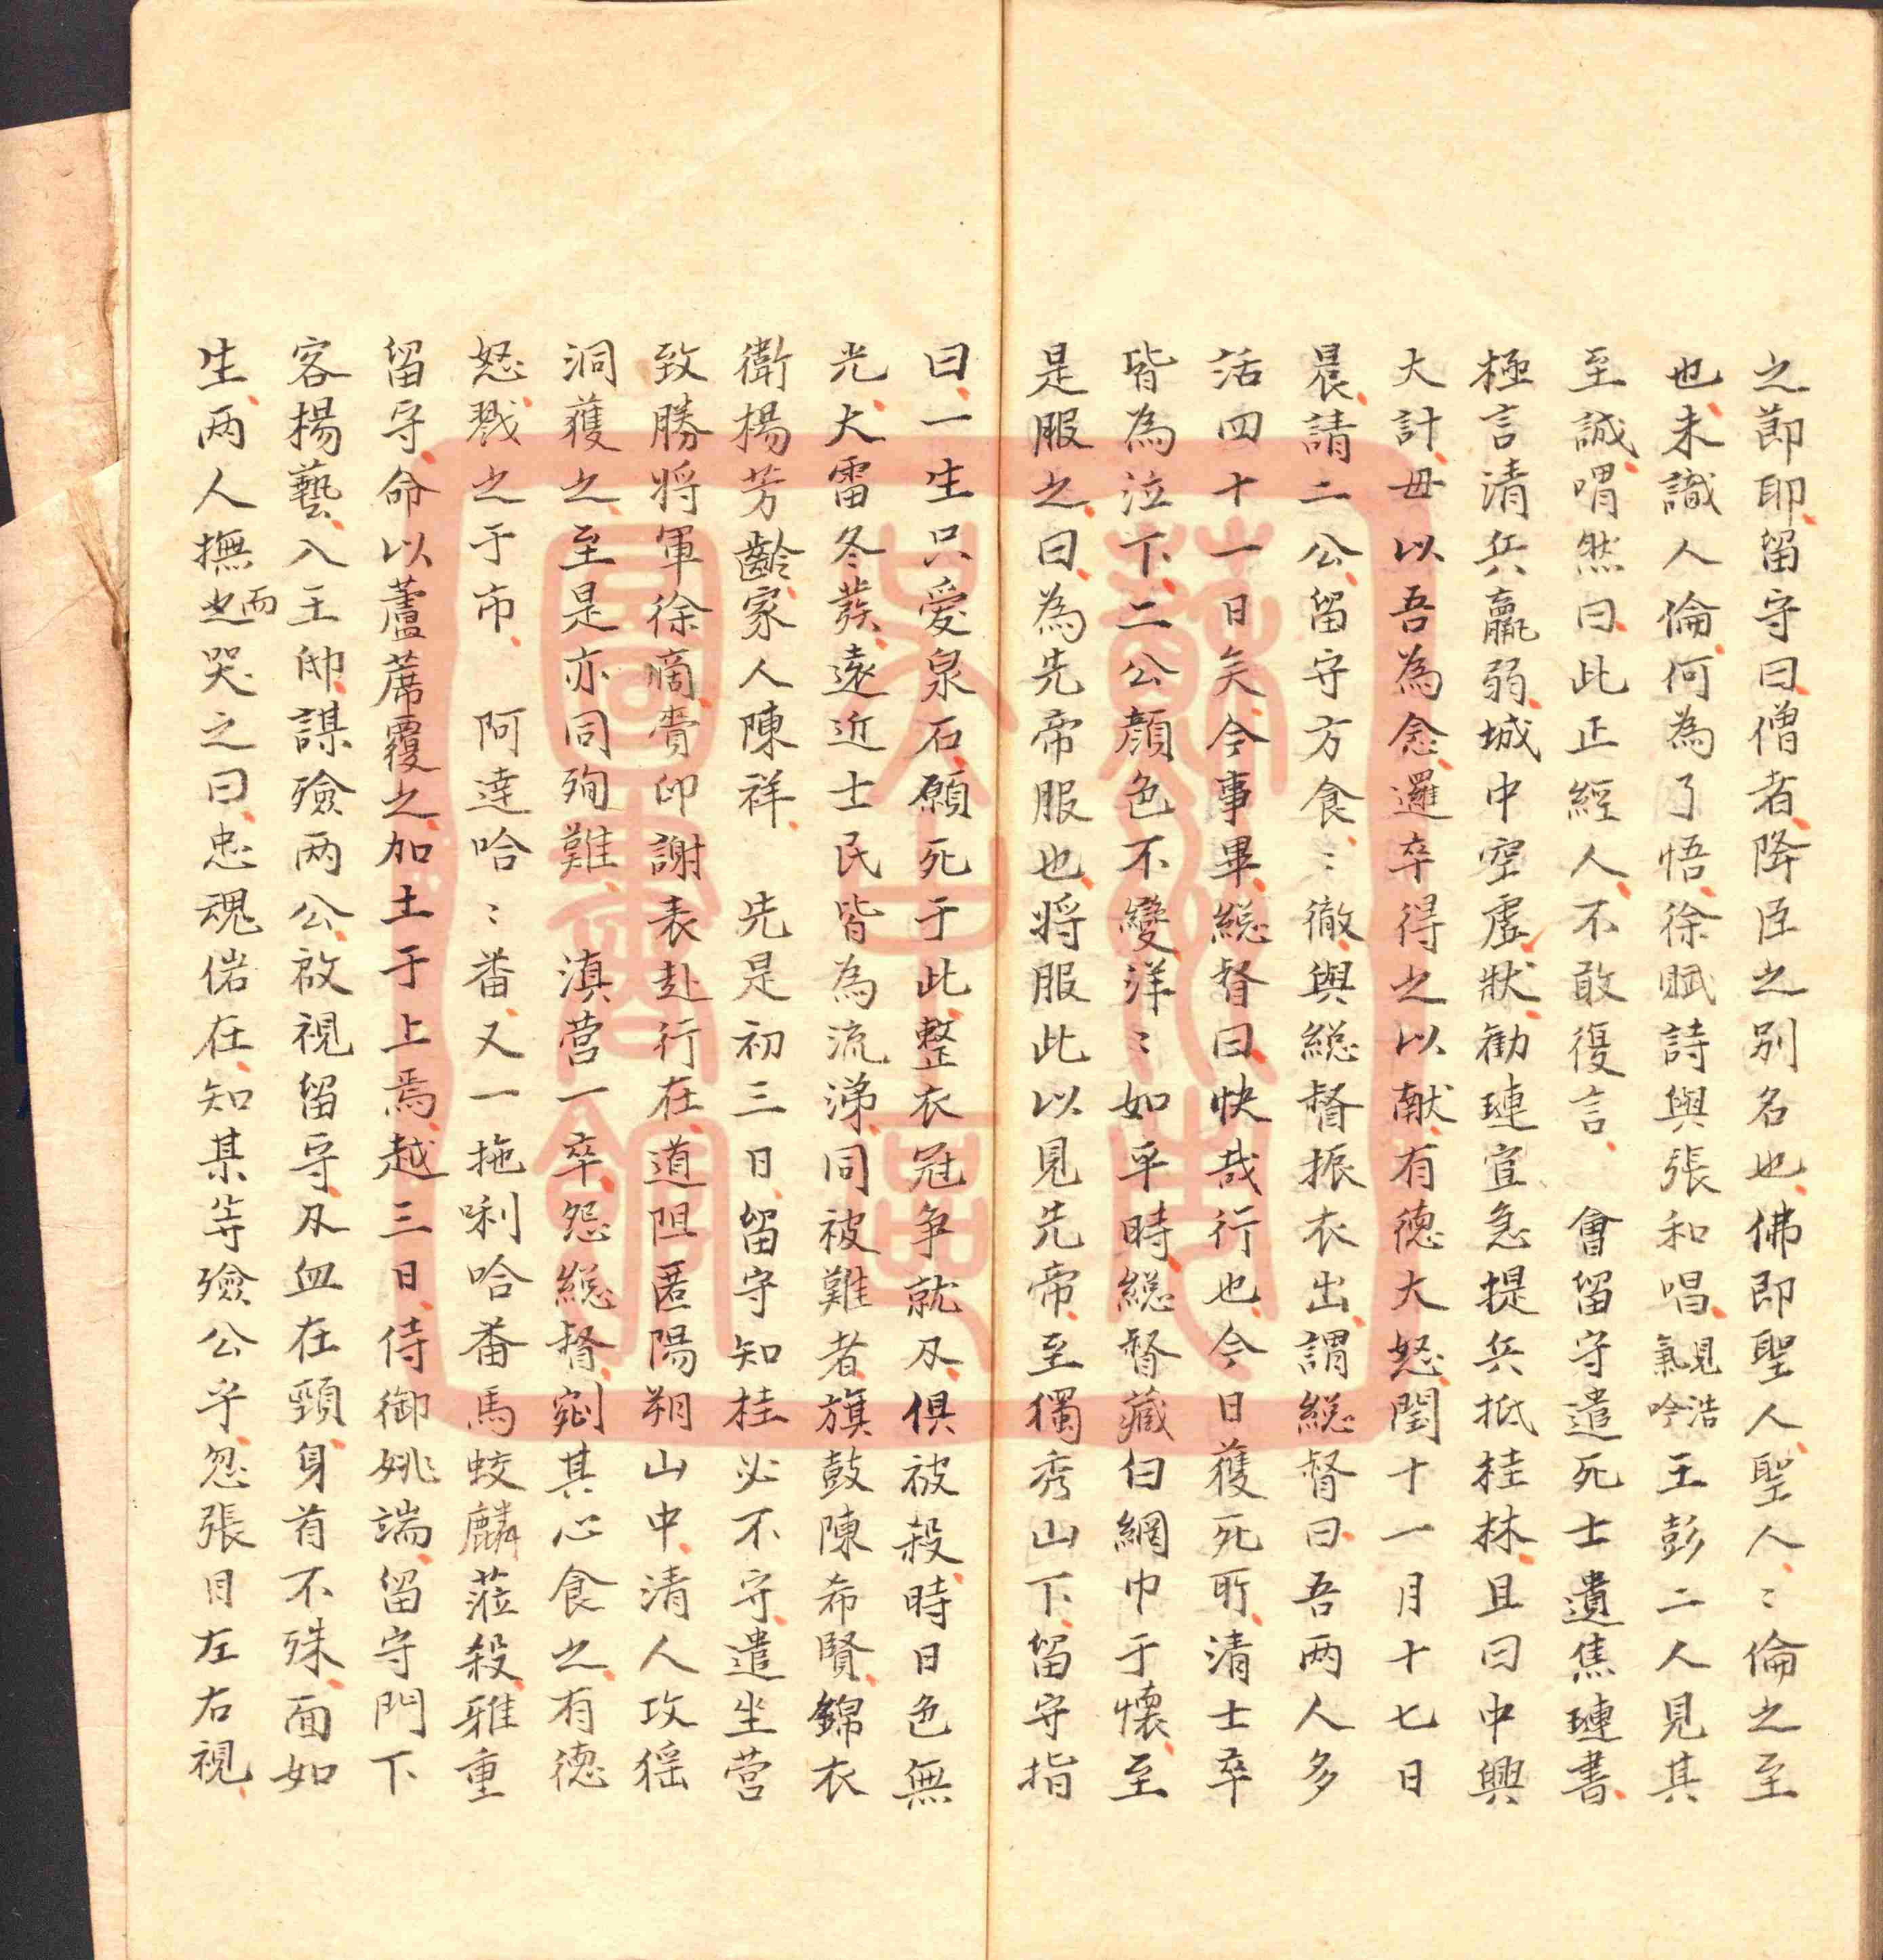 之節耶留守曰僧者降臣之别名也佛即聖人聖人〻倫之至
也未識人倫何為了悟徐賦詩與張和唱見浩氣吟王彭二人見其
至誠喟然曰此正經人不敢復言　會留守遣死士遺焦璉書
極言清兵羸弱城中空虛狀勸璉宜急提兵抵桂林且曰中興
大計毋以吾為念邏卒得之以献有德大怒閏十一月十七日
晨請二公留守方食〻徹與総督振衣出謂総督曰吾两人多
活四十一日矣今事畢総督曰快哉行也今日獲死所清士卒
皆為泣下二公顔色不變洋〻如平時総督藏白網巾于懷至
是服之曰為先帝服也将服此以見先帝至獨秀山下留守指
曰一生只愛泉石願死于此整衣冠争就刄俱被殺時日色無
光大雷冬發遠近士民皆為流涕同被難者旗鼓陳希賢錦衣
衛楊芳齡家人陳祥　先是初三日留守知桂必不守遣坐营
致勝将軍徐滴賫印謝表赴行在道阻匿陽朔山中清人攻猺
洞獲之至是亦同殉難　滇营一卒怨総督剜其心食之有德
怒戮之于市　阿達哈〻番又一拖喇哈番馬蛟麟蒞殺雅重
留守命以蘆蓆覆之加土于上焉越三日侍御姚端留守門下
客楊藝入王帥謀殮两公啟視留守刄血在頸身首不殊面如
生两人撫而也哭之曰忠魂偌在知某等殮公乎忽張目左右視